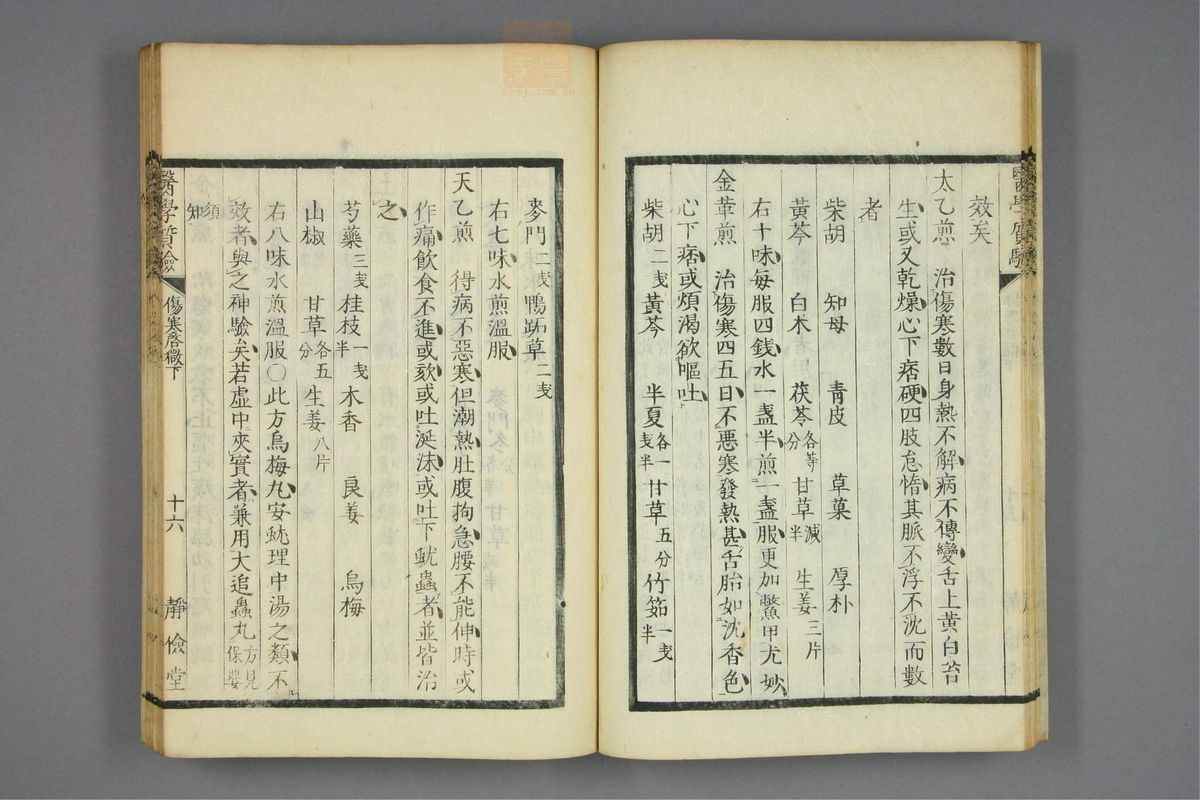 醫學質驗
效矣
太乙煎 治傷寒數日身熱不解病不傳變舌上黃白苔
生或又乾燥心下痞硬四肢怠惰其脈不浮不沈而數
者
柴胡 知母 青皮 草菓 厚朴
黃芩 白术 茯苓各等分 甘草減半 生姜三片
右十味每服四錢水一盞半煎一盞服更加鱉甲尤妙
金華煎 治傷寒四五日不惡寒發熱甚舌胎如沈香色
心下痞或煩渴欲嘔吐
柴胡二戔 黃芩 半夏各一戔半 甘草五分 竹茹一戔半
麥門二戔 鴨跖草二戔
右七味水煎溫服
天乙煎 得病不惡寒但潮熱肚腹拘急腰不能伸時或
作痛飲食不進或欬或吐涎沫或吐下蚘蟲者並皆治
之
芍藥三戔 桂枝一戔半 木香 良姜 烏梅
山椒 甘草各五分 生姜八片
右八味水煎溫服○此方烏梅丸安蚘理中湯之類不
效者與之神驗矣若虛中夾實者兼用大追蟲丸方見保嬰
須知
醫學質驗 傷寒啓微下 十六 靜儉堂
zysj.com.cn